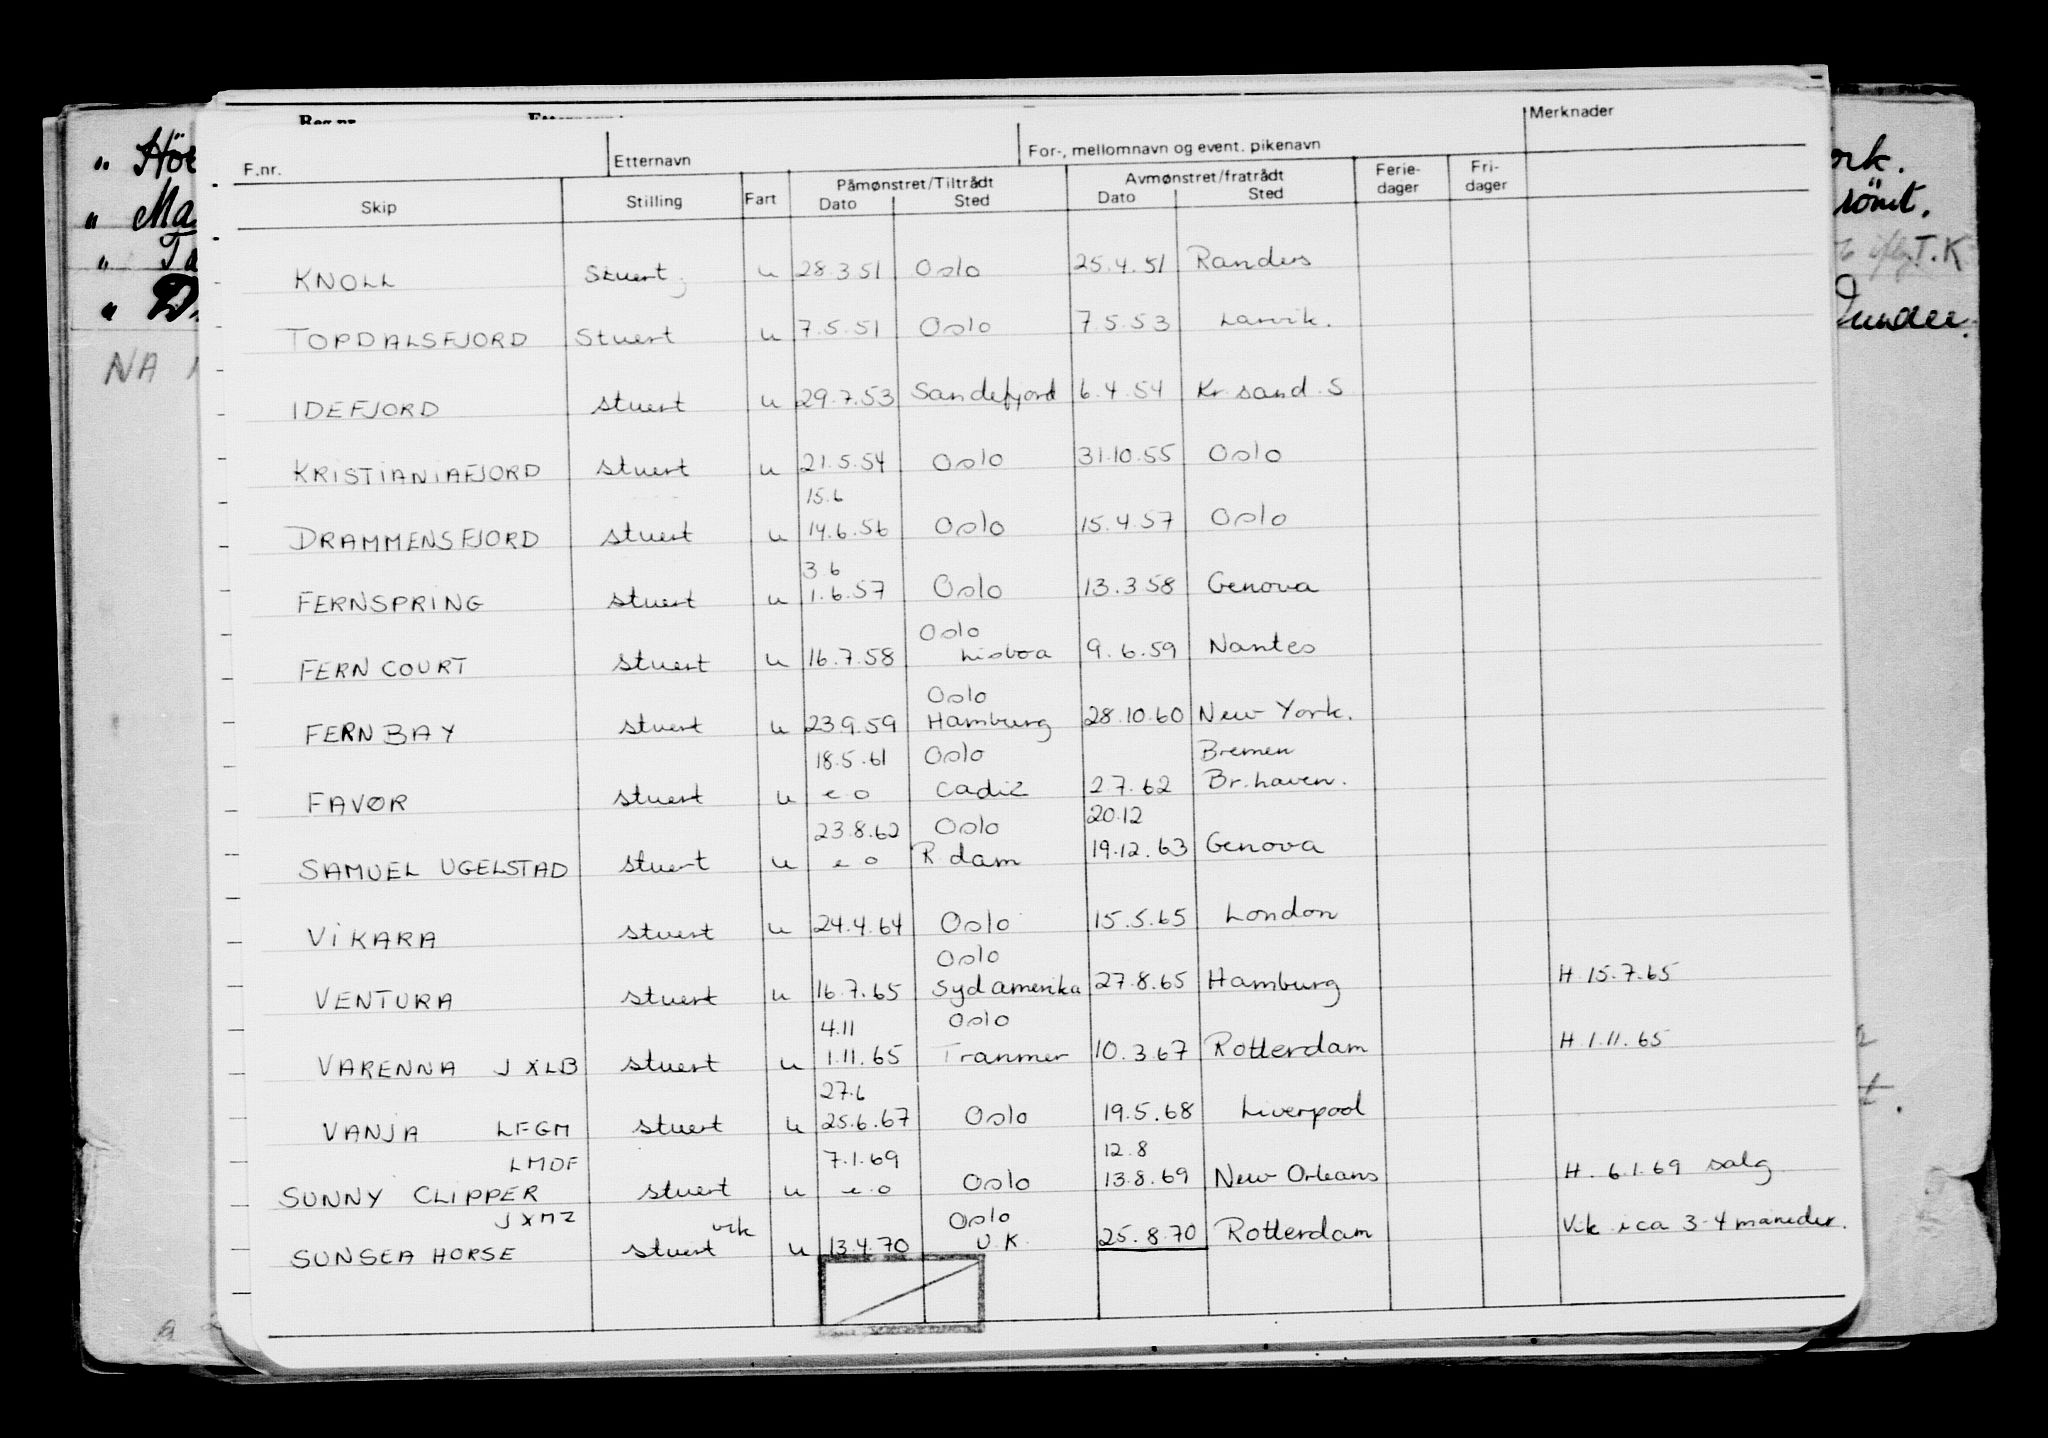 F.nr. Etternavn For-, mellomnavn og event. pikenavn Merknader
Skip Stilling Fart Påmønstret/Tiltrådt Dato Sted Avmønstret/fratrådt Dato Sted Ferie-dager Fri-dager
KNOLL Stuert u 28.3.51 Oslo 25.4.51 Randers
TOPDALSFJORD Stuert u 7.5.51 Oslo 7.5.53 Larvik.
IDEFJORD stuert u 29.7.53 Sandefjord 6.4.54 Kr.sand.S
KRISTIANIAFJORD stuert u 21.5.54 Oslo 31.10.55 Oslo
15.6
DRAMMENSFJORD stuert u 14.6.56 Oslo 15.4.57 Oslo
3.6
FERNSPRING stuert u 1.6.57 Oslo 13.3.58 Genova
Oslo
FERNCOURT stuert u 16.7.58 Lisboa 9.6.59 Nantes
Oslo
FERNBAY stuert u 23.9.59 Hamburg 28.10.60 New York.
18.5.61 Oslo Bremen
FAVOR stuert u e o Cadiz 2.7.62 Br.haven.
23.8.62 Oslo 20.12
SAMUEL UGELSTAD stuert u e o R.dam 19.12.63 Genova
VIKARA stuert u 24.4.64 Oslo 15.5.65 London
Oslo
VENTURA stuert u 16.7.65 Sydamerika 27.8.65 Hamburg H.15.7.65
4.11 Oslo
VARENNA JXLB stuert u 1.11.65 Tranmer 10.3.67 Rotterdam H.1.11.65
27.6
VANJA LFGM stuert u 25.6.67 Oslo 19.5.68 Liverpool
LMDF 7.1.69 12.8
SUNNY CLIPPER stuert u e o Oslo 13.8.69 New Orleans H. 6.1.69 salg
JXMZ vik Oslo
SUNSEA HORSE stuert u 13.4.70 U.K. 25.8.70 Rotterdam Vik i ca 3-4 måneder.